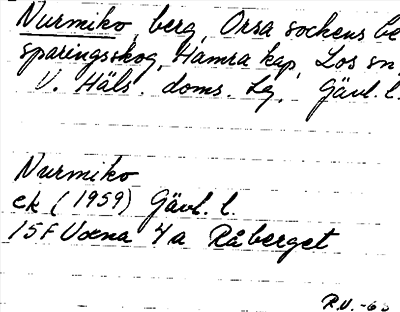 Nurmiko, berg, Orsa sockens be
sparingsskog, Hamra kap, Los sn,
V. Häls. doms. Lg. Gävl. l.
Nurmiko
ek (1959) Gävl. l.
15F Voxna 4a Råberget
R.V. -6